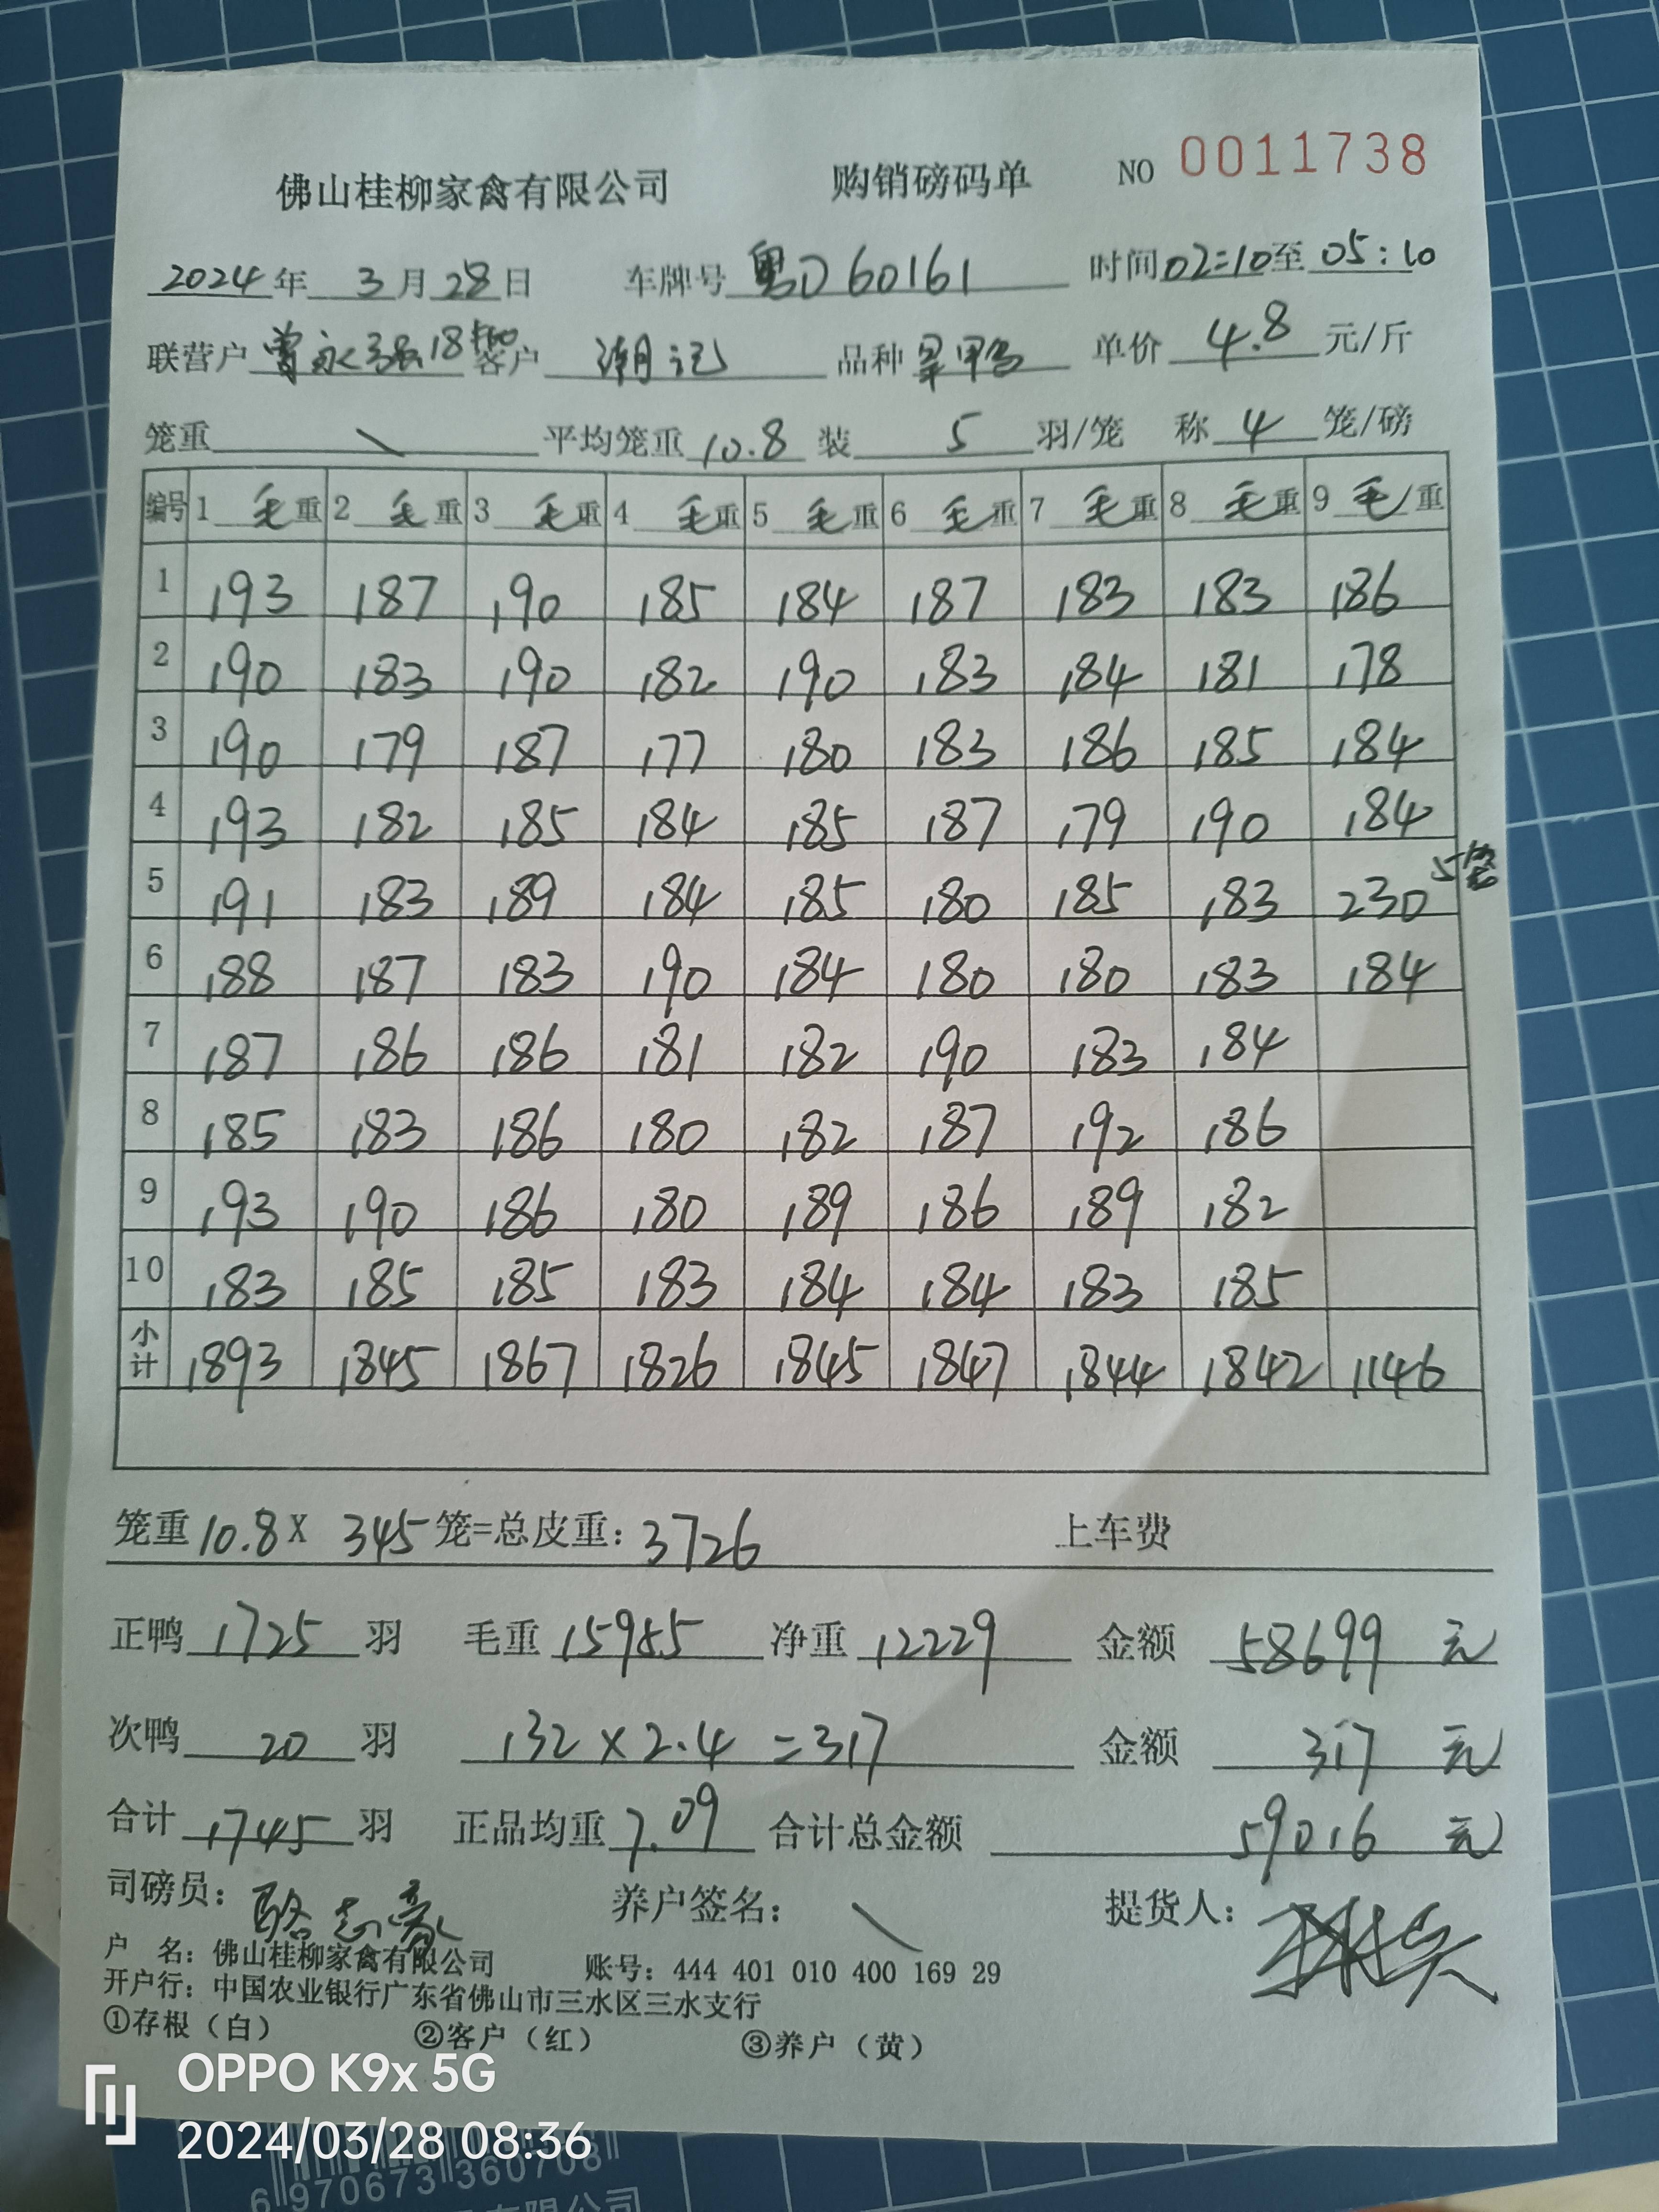 佛山桂柳家禽有限公司 购销磅码单 NO 0011738
2024年 3月28日 车牌号 粤D60161 时间02:10至05:10
联营户 曾永强18 客户 潮记 品种 单价 4.8 元/斤
笼重 \ 平均笼重 10.8 装 5 羽/笼 称 4 笼/磅
编号 1 毛重 2 毛重 3 毛重 4 毛重 5 毛重 6 毛重 7 毛重 8 毛重 9 毛重
1 193 187 190 185 184 187 183 183 186
2 190 183 190 182 190 183 184 181 178
3 190 179 187 177 180 183 186 185 184
4 193 182 185 184 185 187 179 190 184
5 191 183 189 184 185 180 185 183 230 5笼
6 188 187 183 190 184 180 180 183 184
7 187 186 186 181 182 190 183 184
8 185 183 186 180 182 187 192 186
9 193 190 186 180 189 186 189 182
10 183 185 185 183 184 184 183 185
小计 1893 1845 1867 1826 1845 1847 1844 1842 1146
笼重 10.8 X 345 笼=总皮重: 3726 上车费
正鸭 1725 羽 毛重 15955 净重 12229 金额 58699 元
次鸭 20 羽 132×2.4=317 金额 317 元
合计 1745 羽 正品均重 7.09 合计总金额 59016 元
司磅员: 骆志豪 养户签名: \ 提货人:
户 名: 佛山桂柳家禽有限公司 账号: 444 401 010 400 169 29
开户行: 中国农业银行广东省佛山市三水区三水支行
①存根（白） ②客户（红） ③养户（黄）
OPPO K9x 5G
2024/03/28 08:36
6 970673 360708
有限公司